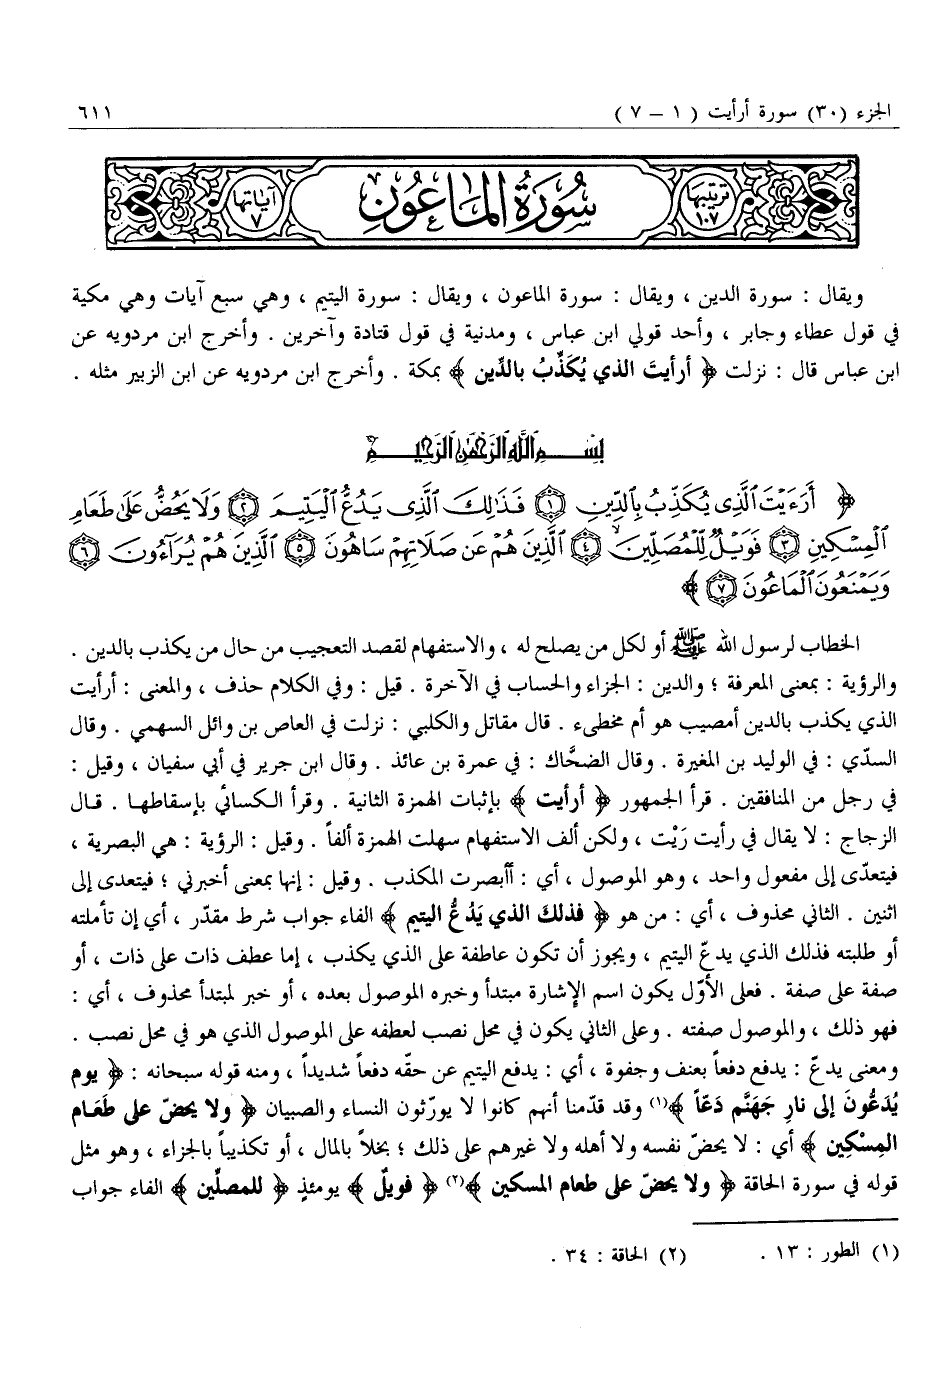 الجزء (٣٠) سورة أرأيت ( ١ - ٧ )
٦١١
ترتيبها
١٠٧
سورة الماعون
آياتها
٧
ويقال : سورة الدين ، ويقال : سورة الماعون ، ويقال : سورة اليتيم ، وهي سبع آيات وهي مكية
في قول عطاء وجابر ، وأحد قولي ابن عباس ، ومدنية في قول قتادة وآخرين . وأخرج ابن مردويه عن
ابن عباس قال : نزلت ﴿ أرأيتَ الذي يُكَذِّبُ بالدِّين ﴾ بمكة . وأخرج ابن مردويه عن ابن الزبير مثله .
بِسْمِ اللَّهِ الرَّحْمَٰنِ الرَّحِيمِ
﴿ أَرَءَيْتَ الَّذِي يُكَذِّبُ بِالدِّينِ ١ فَذَٰلِكَ الَّذِي يَدُعُّ الْيَتِيمَ ٢ وَلَا يَحُضُّ عَلَىٰ طَعَامِ
الْمِسْكِينِ ٣ فَوَيْلٌ لِّلْمُصَلِّينَ ٤ الَّذِينَ هُمْ عَن صَلَاتِهِمْ سَاهُونَ ٥ الَّذِينَ هُمْ يُرَآءُونَ ٦
وَيَمْنَعُونَ الْمَاعُونَ ٧ ﴾
الخطاب لرسول الله ﷺ أو لكل من يصلح له ، والاستفهام لقصد التعجيب من حال من يكذب بالدين .
والرؤية : بمعنى المعرفة ؛ والدين : الجزاء والحساب في الآخرة . قيل : وفي الكلام حذف ، والمعنى : أرأيت
الذي يكذب بالدين أمصيب هو أم مخطىء . قال مقاتل والكلبي : نزلت في العاص بن وائل السهمي . وقال
السدّي : في الوليد بن المغيرة . وقال الضحَّاك : في عمرة بن عائذ . وقال ابن جرير في أبي سفيان ، وقيل :
في رجل من المنافقين . قرأ الجمهور ﴿ أرأيت ﴾ بإثبات الهمزة الثانية . وقرأ الكسائي بإسقاطها . قال
الزجاج : لا يقال في رأيت رَيْت ، ولكن ألف الاستفهام سهلت الهمزة ألفاً . وقيل : الرؤية : هي البصرية ،
فيتعدّى إلى مفعول واحد ، وهو الموصول ، أي : أأبصرت المكذب . وقيل : إنها بمعنى أخبرني ؛ فيتعدى إلى
اثنين . الثاني محذوف ، أي : من هو ﴿ فذلك الذي يَدُعُّ اليتيم ﴾ الفاء جواب شرط مقدّر ، أي إن تأملته
أو طلبته فذلك الذي يدعّ اليتيم ، ويجوز أن تكون عاطفة على الذي يكذب ، إما عطف ذات على ذات ، أو
صفة على صفة . فعلى الأوّل يكون اسم الإشارة مبتدأ وخبره الموصول بعده ، أو خبر لمبتدأ محذوف ، أي :
فهو ذلك ، والموصول صفته . وعلى الثاني يكون في محل نصب لعطفه على الموصول الذي هو في محل نصب .
ومعنى يدعّ : يدفع دفعاً بعنف وجفوة ، أي : يدفع اليتيم عن حقّه دفعاً شديداً ، ومنه قوله سبحانه : ﴿ يوم
يُدَعُّونَ إلى نارِ جَهَنَّم دَعّاً ﴾(١) وقد قدّمنا أنهم كانوا لا يورّثون النساء والصبيان ﴿ ولا يحضّ على طَعَام
المِسْكِين ﴾ أي : لا يحضّ نفسه ولا أهله ولا غيرهم على ذلك ؛ بخلاً بالمال ، أو تكذيباً بالجزاء ، وهو مثل
قوله في سورة الحاقة ﴿ ولا يحضّ على طعام المسكين ﴾(٢) ﴿ فويلٌ ﴾ يومئذٍ ﴿ للمصلِّين ﴾ الفاء جواب
(١) الطور : ١٣ .
(٢) الحاقة : ٣٤ .